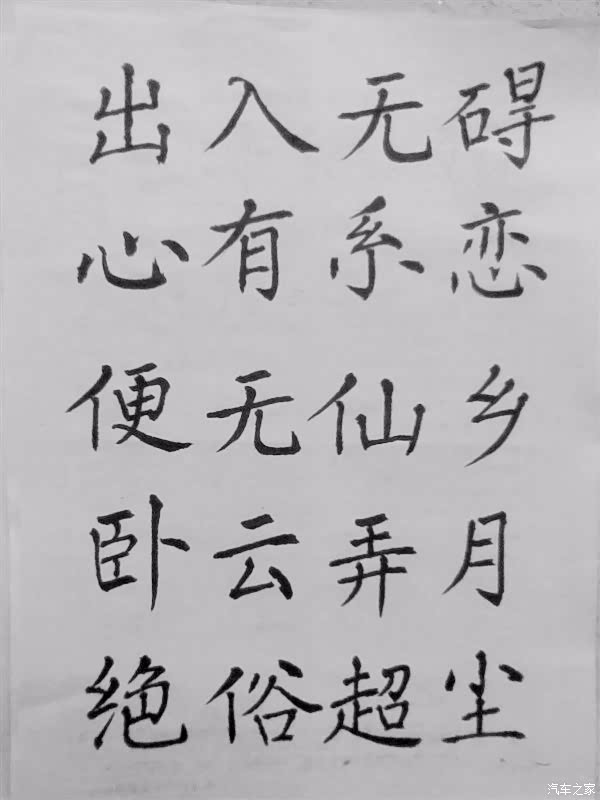 出入无碍
心有系恋
便无仙乡
卧云弄月
绝俗超尘
汽车之家